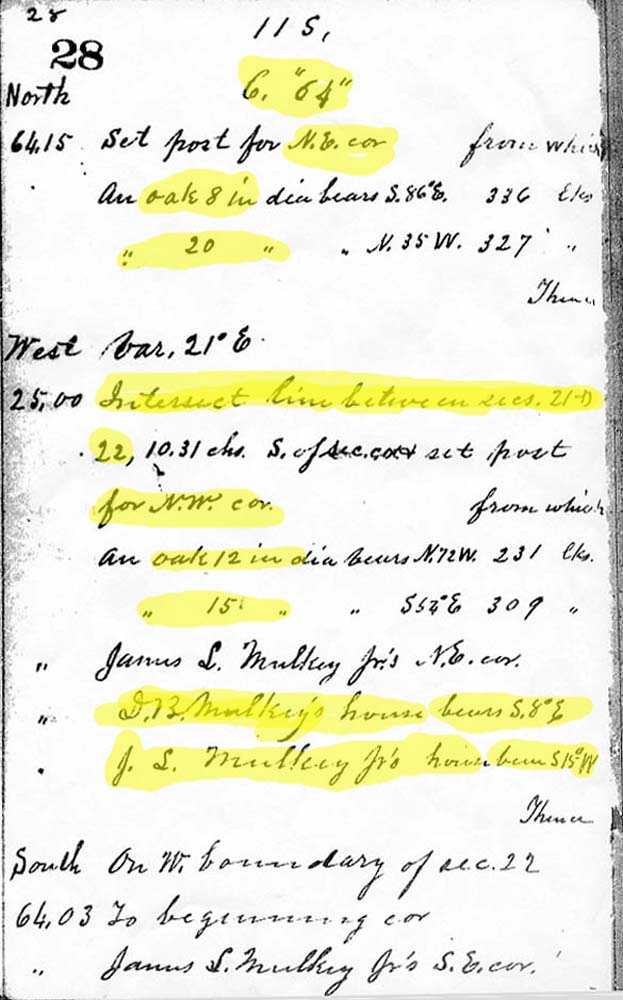 28
28
11 S,
North C. "64"
64.15 Set post for N.E. cor from which
An oak 8 in dia bears S.86°E. 336 lks
" 20 " " N. 35 W. 327 "
Thence
West Var, 21° E.
25,00 Intersect line between secs. 21
22, 10.31 chs. S. of sec. cor set post
for N.W. cor. from which
An oak 12 in dia bears N.72W. 231 lks.
" 15 " " S52°E 309 "
" James L. Mulkey Jr's N.E. cor.
" D.B. Mulkey's house bears S.8°E
" J. L. Mulkey Jr's house bears S15°W
Thence
South On W. boundary of sec. 22
64,03 To beginning cor
" James L. Mulkey Jr's S.E. cor.